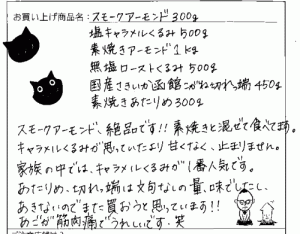 お買い上げ商品名：スモークアーモンド300g
塩キャラメルくるみ500g
素焼きアーモンド1kg
無塩ローストくるみ500g
国産さきいか函館こがね切れっ端450g
素焼きあたりめ300g
スモークアーモンド、絶品です!!素焼きと混ぜて食べてます。
キャラメルくるみが思っていたより甘くなく、止まりません。
家族の中では、キャラメルくるみが1番人気です。
あたりめ、切れっ端は文句なしの量、味でしたし、
あきないのでまた買おうと思っています!!
あごが筋肉痛でうれしいです。笑